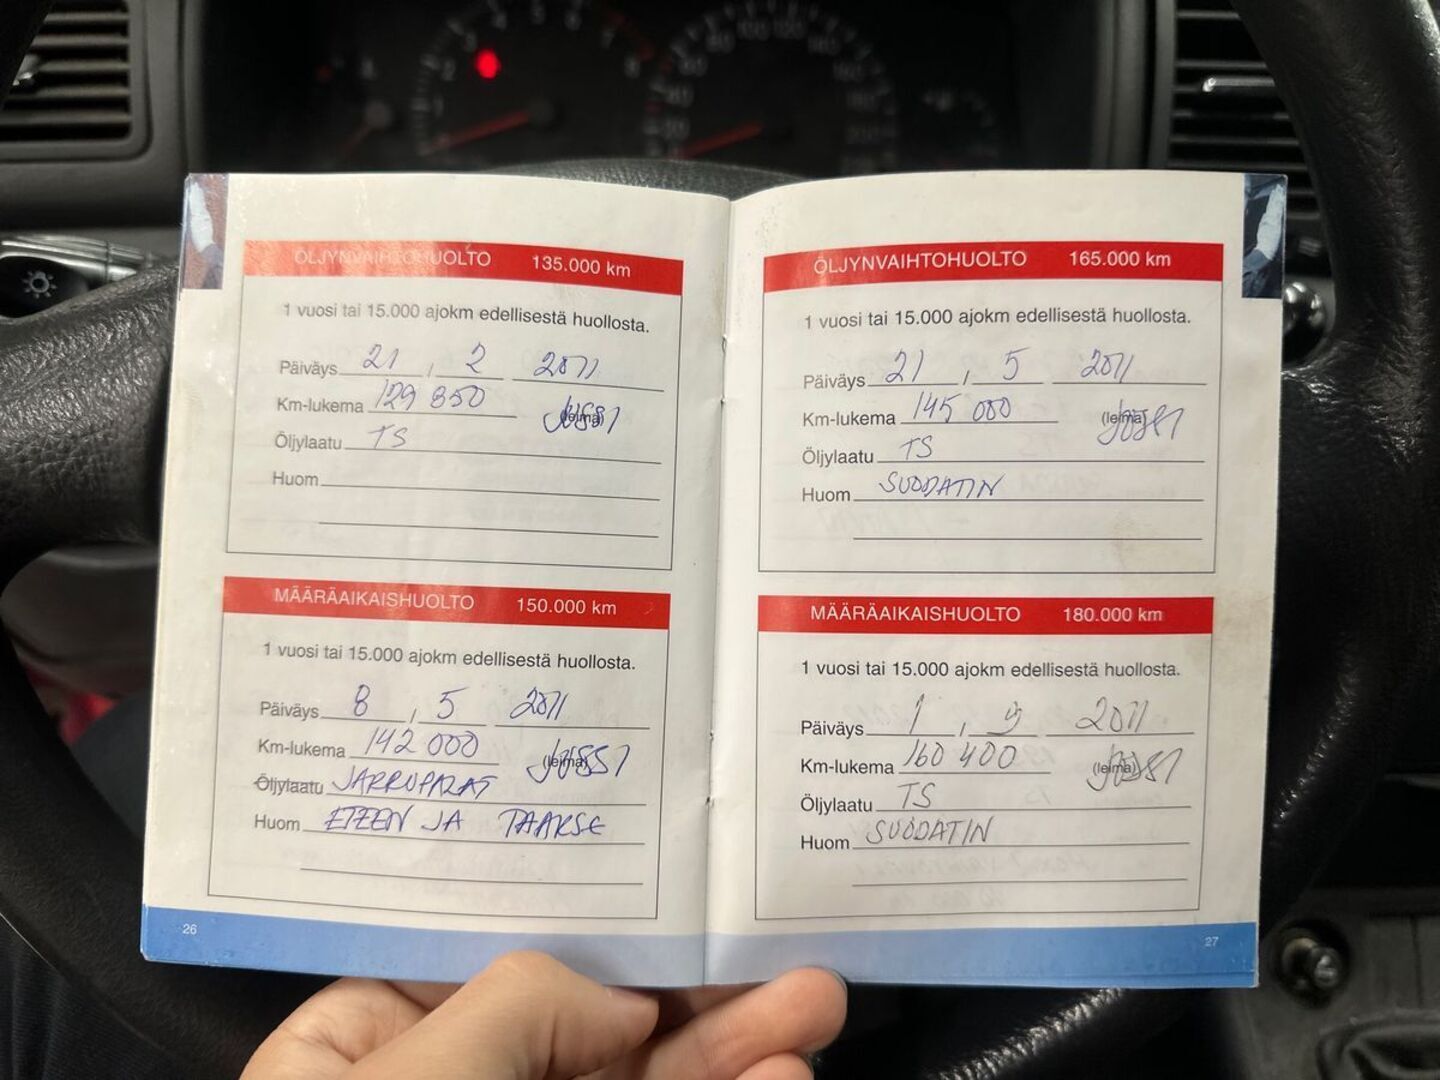 ÖLJYNVAIHTOHUOLTO 135.000 km
1 vuosi tai 15.000 ajokm edellisestä huollosta.
Päiväys 21 , 2 2011
Km-lukema 129 850
(leima) JUSSI
Öljylaatu TS
Huom
MÄÄRÄAIKAISHUOLTO 150.000 km
1 vuosi tai 15.000 ajokm edellisestä huollosta.
Päiväys 8 , 5 2011
Km-lukema 142 000
(leima) JUSSI
Öljylaatu JARRUPALAT
Huom ETEEN JA TAAKSE
26
ÖLJYNVAIHTOHUOLTO 165.000 km
1 vuosi tai 15.000 ajokm edellisestä huollosta.
Päiväys 21 , 5 2011
Km-lukema 145 000
(leima) JUSSI
Öljylaatu TS
Huom SUODATIN
MÄÄRÄAIKAISHUOLTO 180.000 km
1 vuosi tai 15.000 ajokm edellisestä huollosta.
Päiväys 1 , 9 2011
Km-lukema 160 400
(leima) JUSSI
Öljylaatu TS
Huom SUODATIN
27